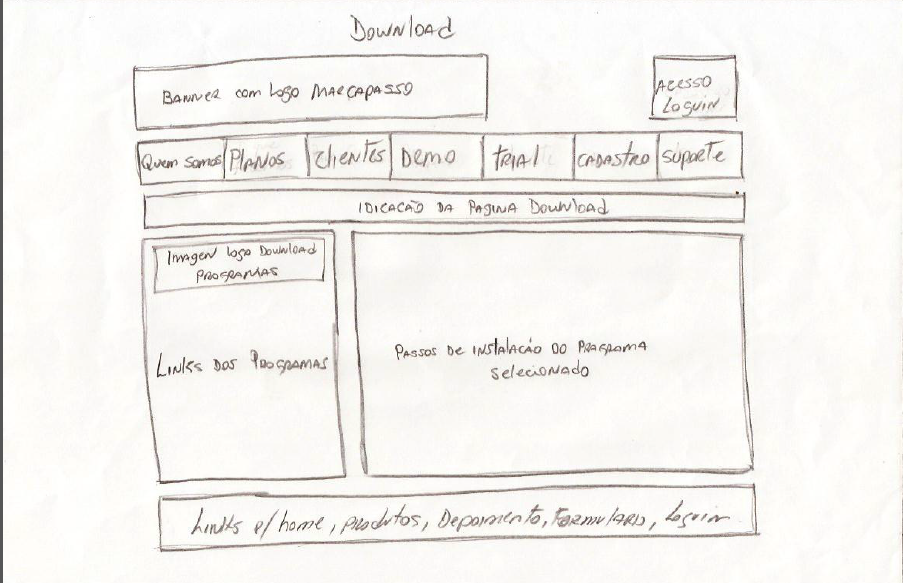 Download
Banner com Logo Marcapasso
Acesso
Loguin
Quem somos
Planos
Clientes
Demo
Trial
Cadastro
Suporte
Idicação da Pagina Download
Imagen Logo Download
Programas
Links dos Programas
Passos de instalação do Programa
selecionado
Links p/ home, Produtos, Depoimento, Formulario, Loguin